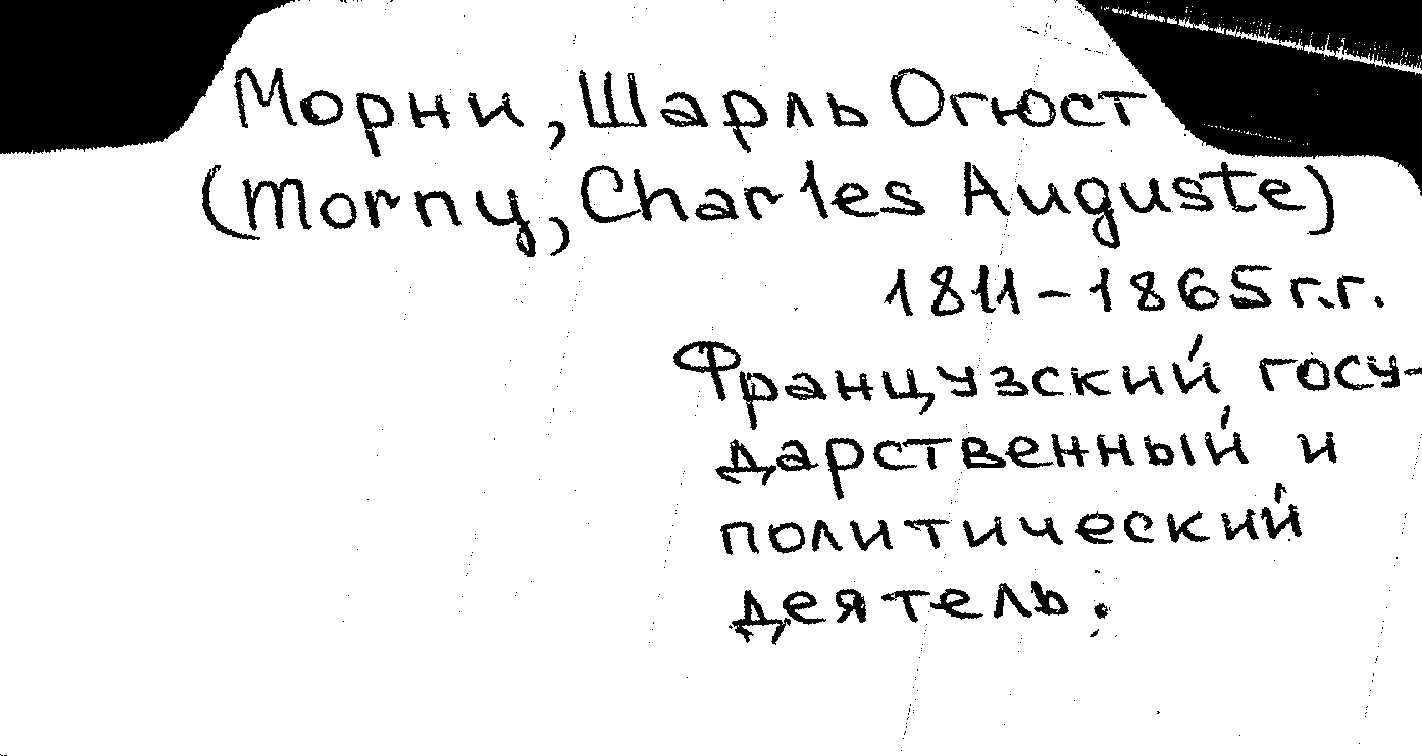 Морни, Шарль Огюст
(Morny, Charles Auguste)
1811-1865 г.г.
Французский госу-
дарственный и
политический
деятель.